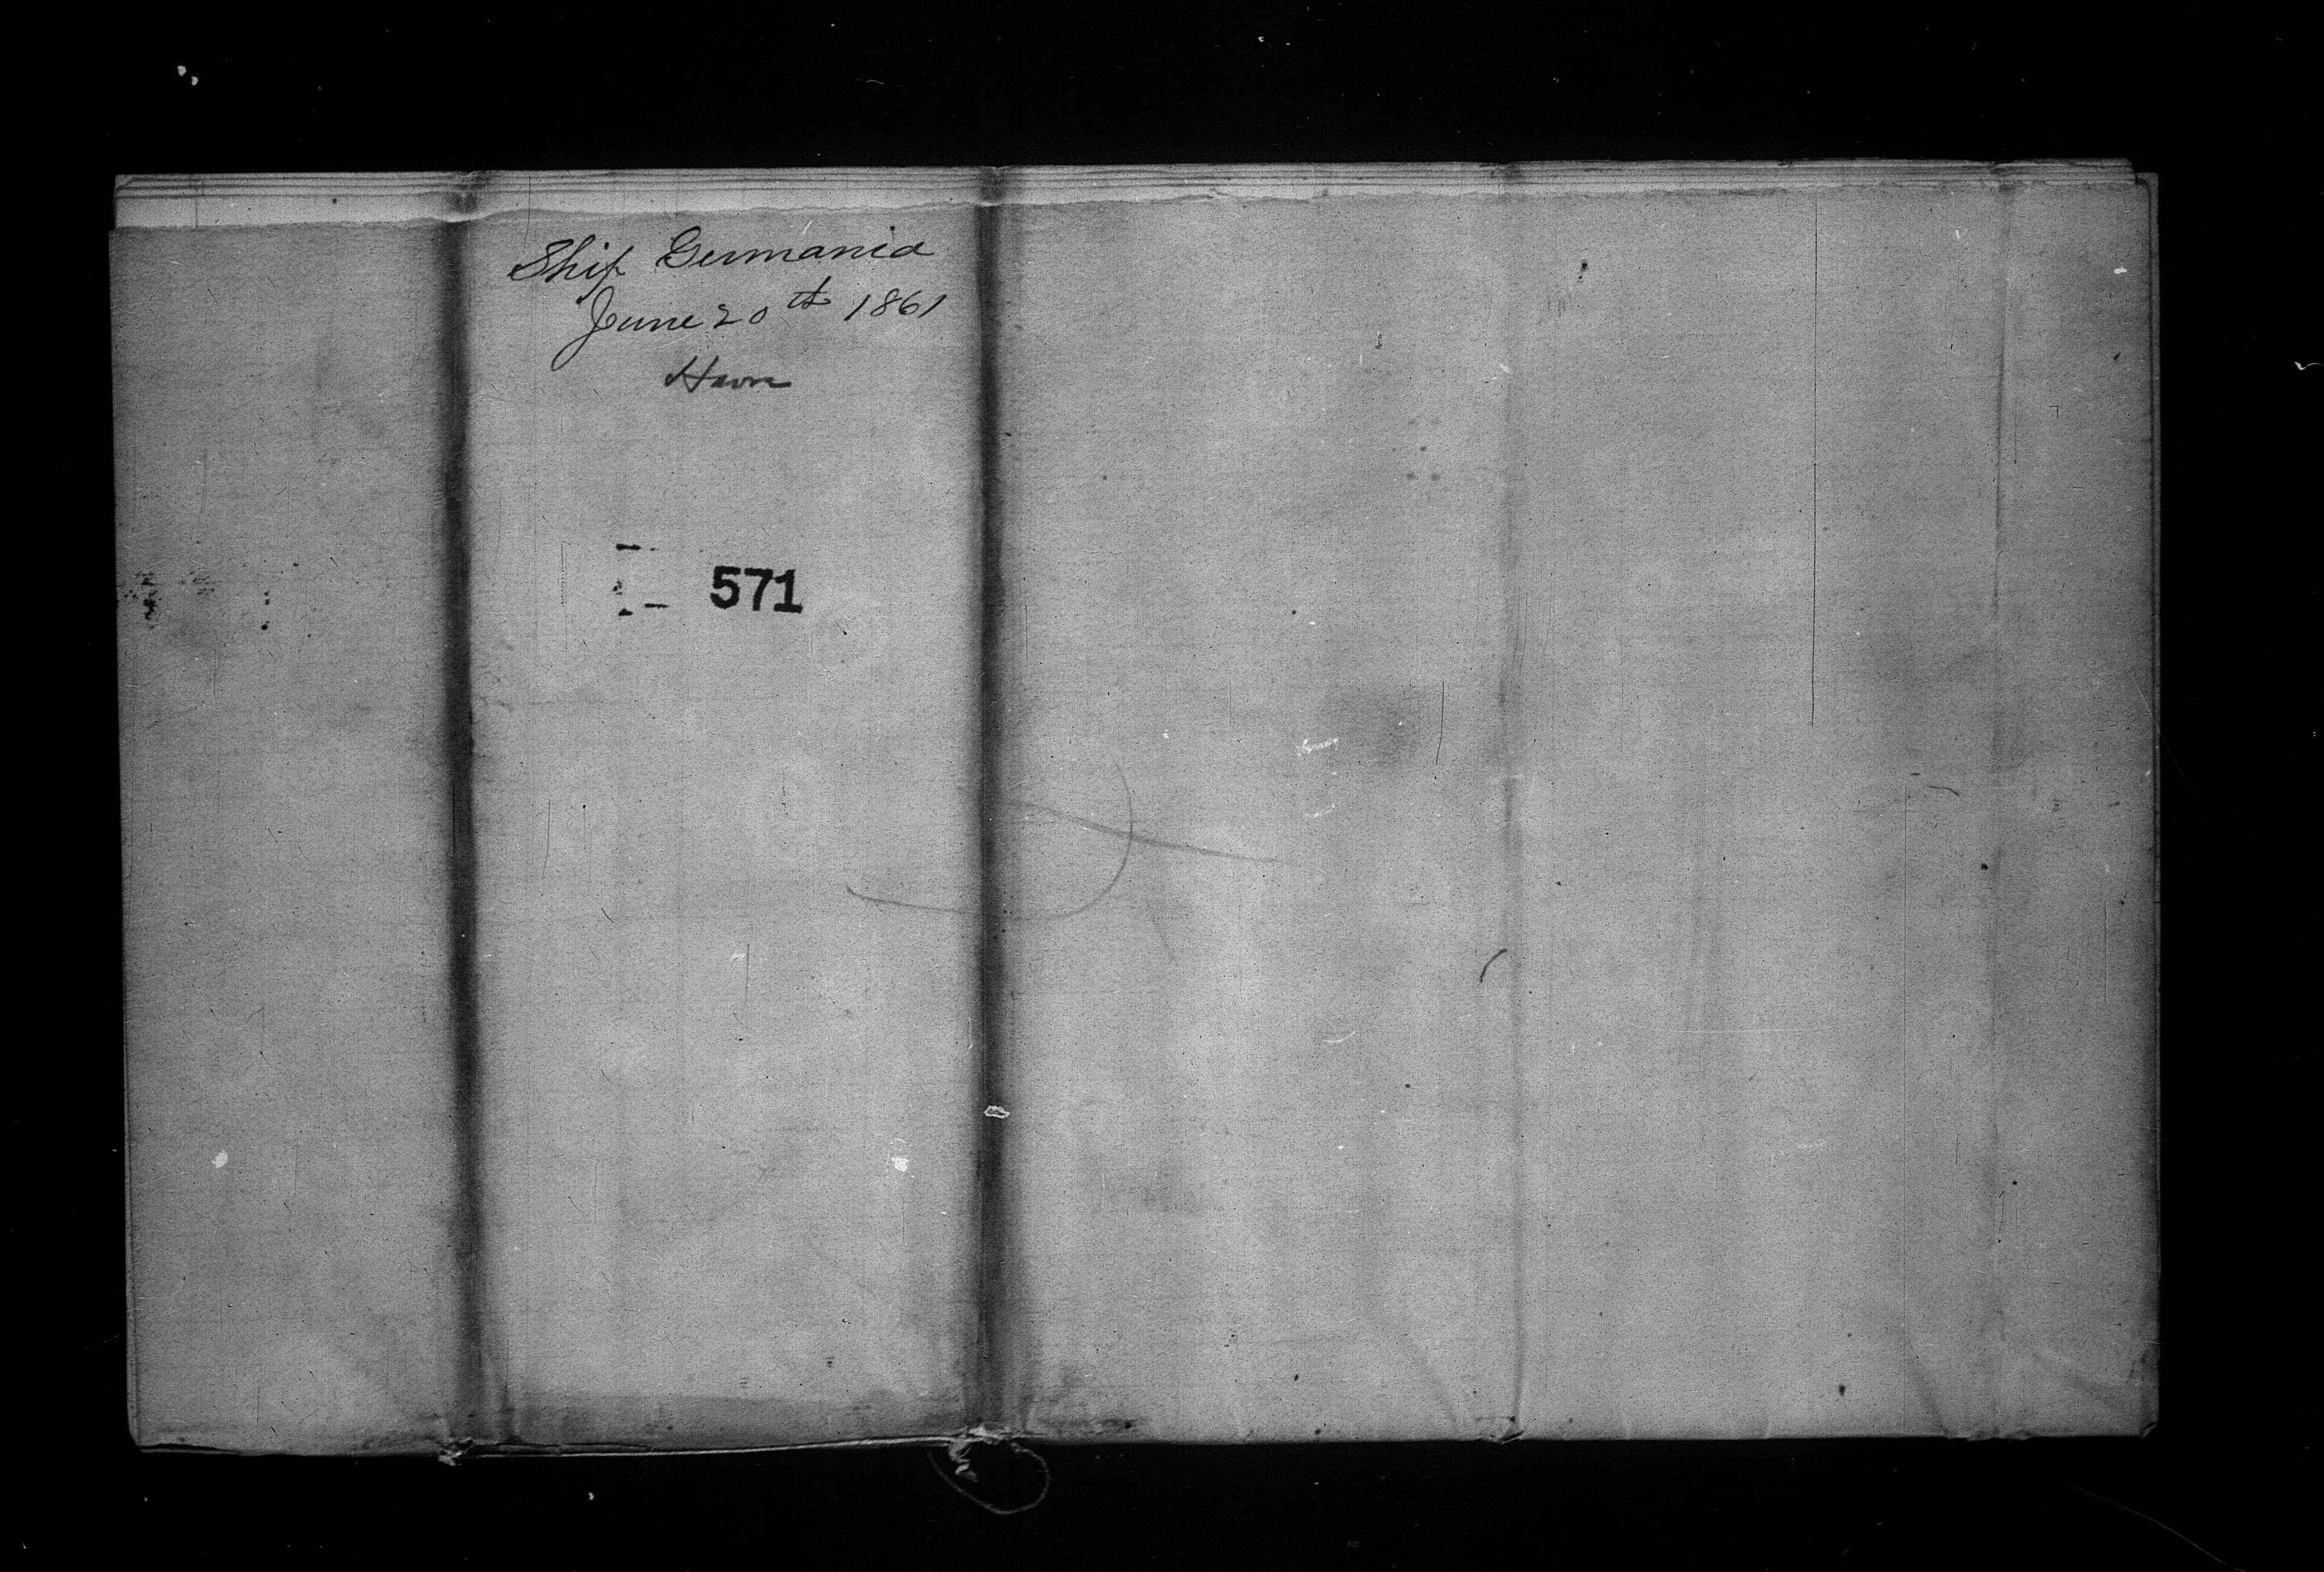 Ship Germania
June 20th 1861
Havre
571